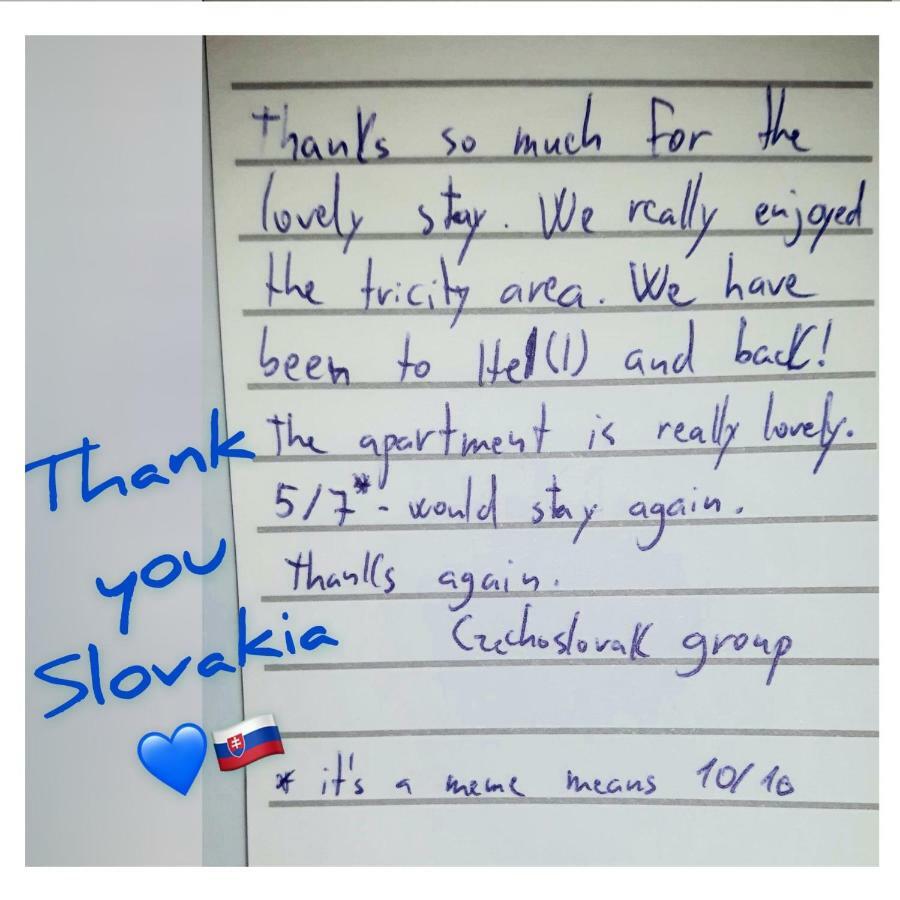 Thanks so much for the
lovely stay. We really enjoyed
the tricity area. We have
been to Hel(l) and back!
The apartment is really lovely.
5/7* - would stay again.
Thanks again.
Czechoslovak group
* it's a meme means 10/10
Thank
you
Slovakia
💙🇸🇰